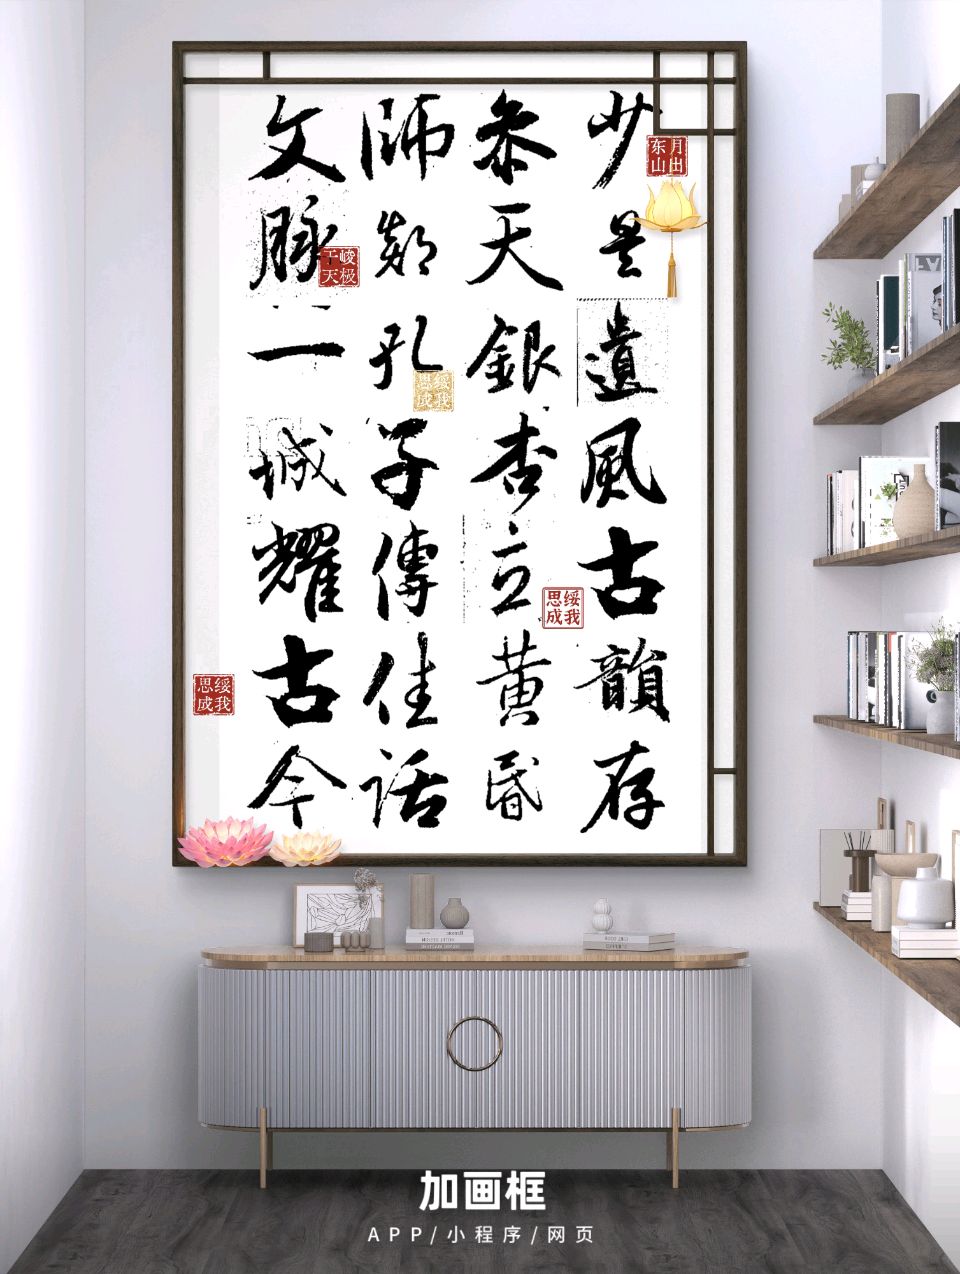 少昊遺風古韻存
参天銀杏立黄昏
師郯孔子傳佳話
文脉一城耀古今
月出
东山
峻极
于天
绥我
思成
绥我
思成
绥我
思成
加画框
APP/小程序/网页